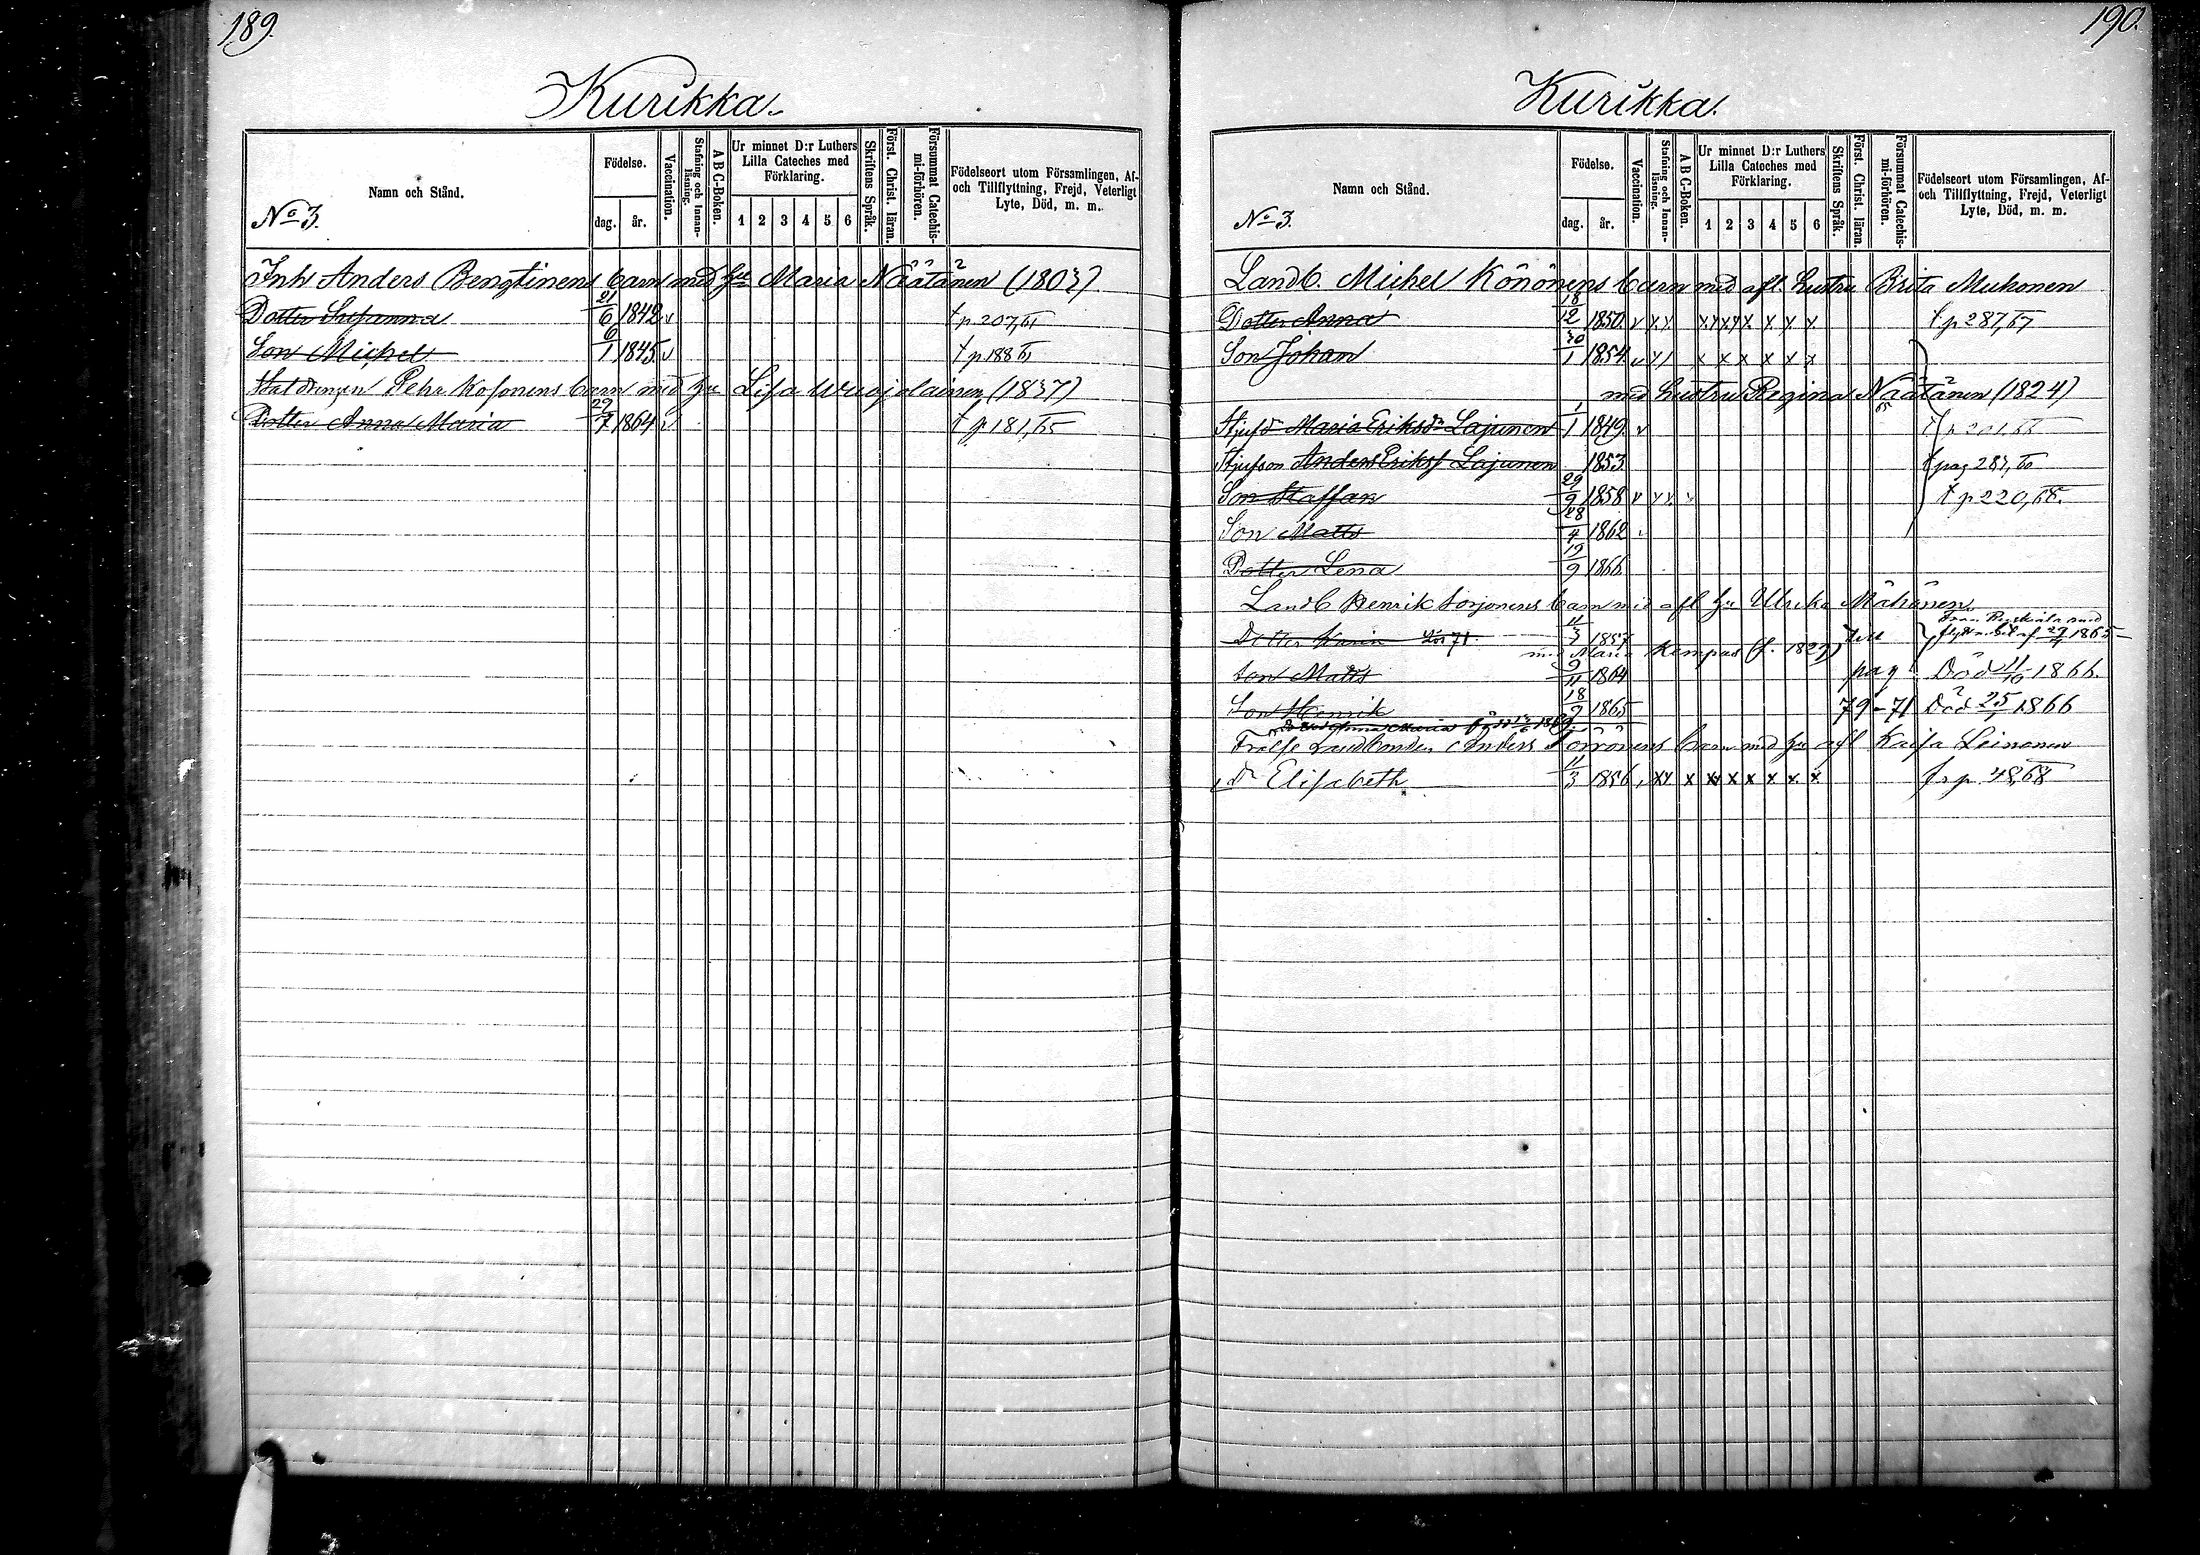 189.
Kurikka.
Namn och Stånd.
No 3.
Födelse.
dag. år.
Vaccination.
Stafning och Innanläsning.
A B C-Boken.
Ur minnet D:r Luthers Lilla Cateches med Förklaring.
1 2 3 4 5 6
Skriftens Språk.
Först. Christ. läran.
Försummat Catechismi-förhören.
Födelseort utom Församlingen, Af- och Tillflyttning, Frejd, Veterligt Lyte, Död, m. m.
Inh Anders Bengtinens barn med hu Maria Näätänen (1803)
Dotter Susanna 21/6 1842 v † p 207,61
Son Michel 6/1 1845 v † p 188 61
Pehr Kosonens barn med hu Lisa Wuojolainen (1837)
Dotter Anna Maria 29/7 1864 v † p 181,65
190.
Kurikka.
Namn och Stånd.
No 3.
Födelse.
dag. år.
Vaccination.
Stafning och Innanläsning.
A B C-Boken.
Ur minnet D:r Luthers Lilla Cateches med Förklaring.
1 2 3 4 5 6
Skriftens Språk.
Först. Christ. läran.
Försummat Catechismi-förhören.
Födelseort utom Församlingen, Af- och Tillflyttning, Frejd, Veterligt Lyte, Död, m. m.
Landb. Michel Könönens barn med afl. hustru Brita Muhonen
Dotter Anna 18/12 1850 v x x x x x x x x † p 287,67
Son Johan 30/1 1854 v x x x x x x x
med hustru Regina Näätänen (1824)
Stjufd Maria Eriksdr Lajunen 1/1 1849 v
Stjufson Anders Eriks Lajunen 1853 † pag 287, 60
Son Staffan 29/9 1858 † p 220,68.
Son Matts 28/4 1862
Dotter Lena 19/9 1866
Landb Henrik Sorjonens barn med afl hu Ulrika Mähönen
Dotter 11/3 1857
med Maria Kempas (f. 1827)
1865
Son Matts 9/11 1864 pag Död 11/10 1866.
Son Henrik 18/9 1865 79-71 Död 25/1 1866
Anna Maria
Frälse Landbonden Anders Törrönens barn med hu afl Kaisa Leinonen
Dr Elisabeth 11/3 1856 xx x xx x x x x x fr p. 48,68